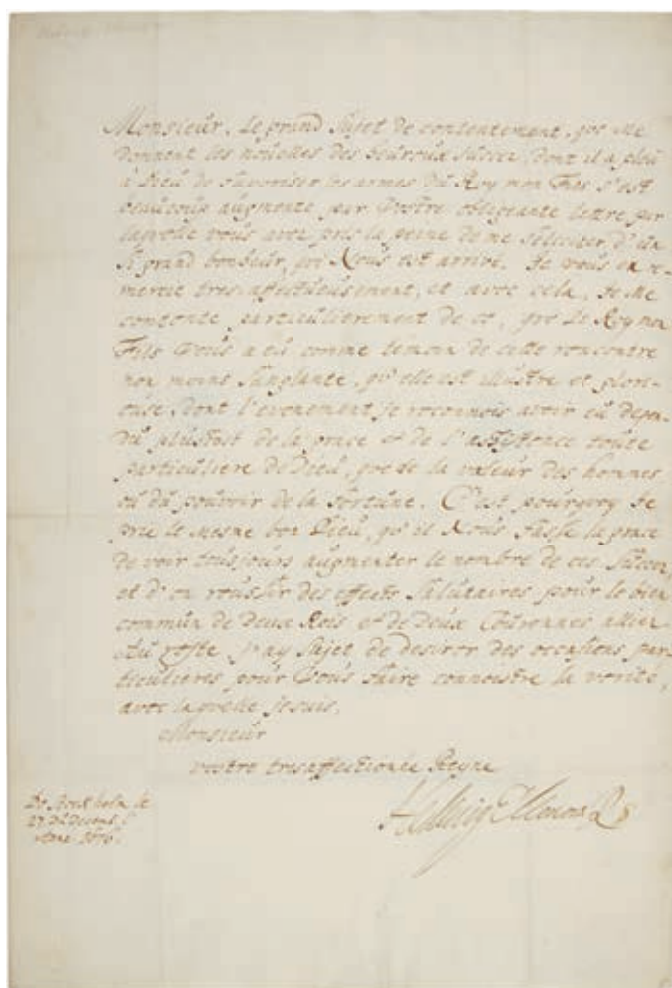 Monsieur, Le grand Sujet de contentement, que Me
donnent les nouëlles des heureux Succez, dont il a pleu
à Dieu de favoriser les armes du Roy mon Fils s'est
beaucoup augmenté par Vostre obligeante lettre par
laquelle vous avez pris la peine de me feliciter d'un
Si grand bonheur, qui Nous est arrivé. Je vous en re-
mercie tres-affectueusement, et avec cela, Je Me
contente particulierement de ce, que Le Roy mon
Fils Vous a eû comme temoin de cette rencontre
non moins Sanglante, qu'elle est illustre et glori-
euse, dont l'evenement je reconnois avoir eû depen-
dû plustost de la grace et de l'assistence toute
particuliere de Dieu, que de la valeur des hommes
ou du pouvoir de la fortune. C'est pourquoy Je
prie le mesme bon Dieu, qu'il Nous fasse la grace
de voir tousjours augmenter le nombre de ces Succez
et d'en reussir des effects Salutaires pour le bien
commun de deux Rois et de deux Couronnes alliez.
Au reste j'ay Sujet de desirer des occasions par-
ticulieres pour Vous faire connoistre la verité,
avec laquelle je suis,
Monsieur
vostre tres affectionée Reyne
Hedewig Eleonora R
De Stockholm le
27 de Decemb.
Anno 1676.